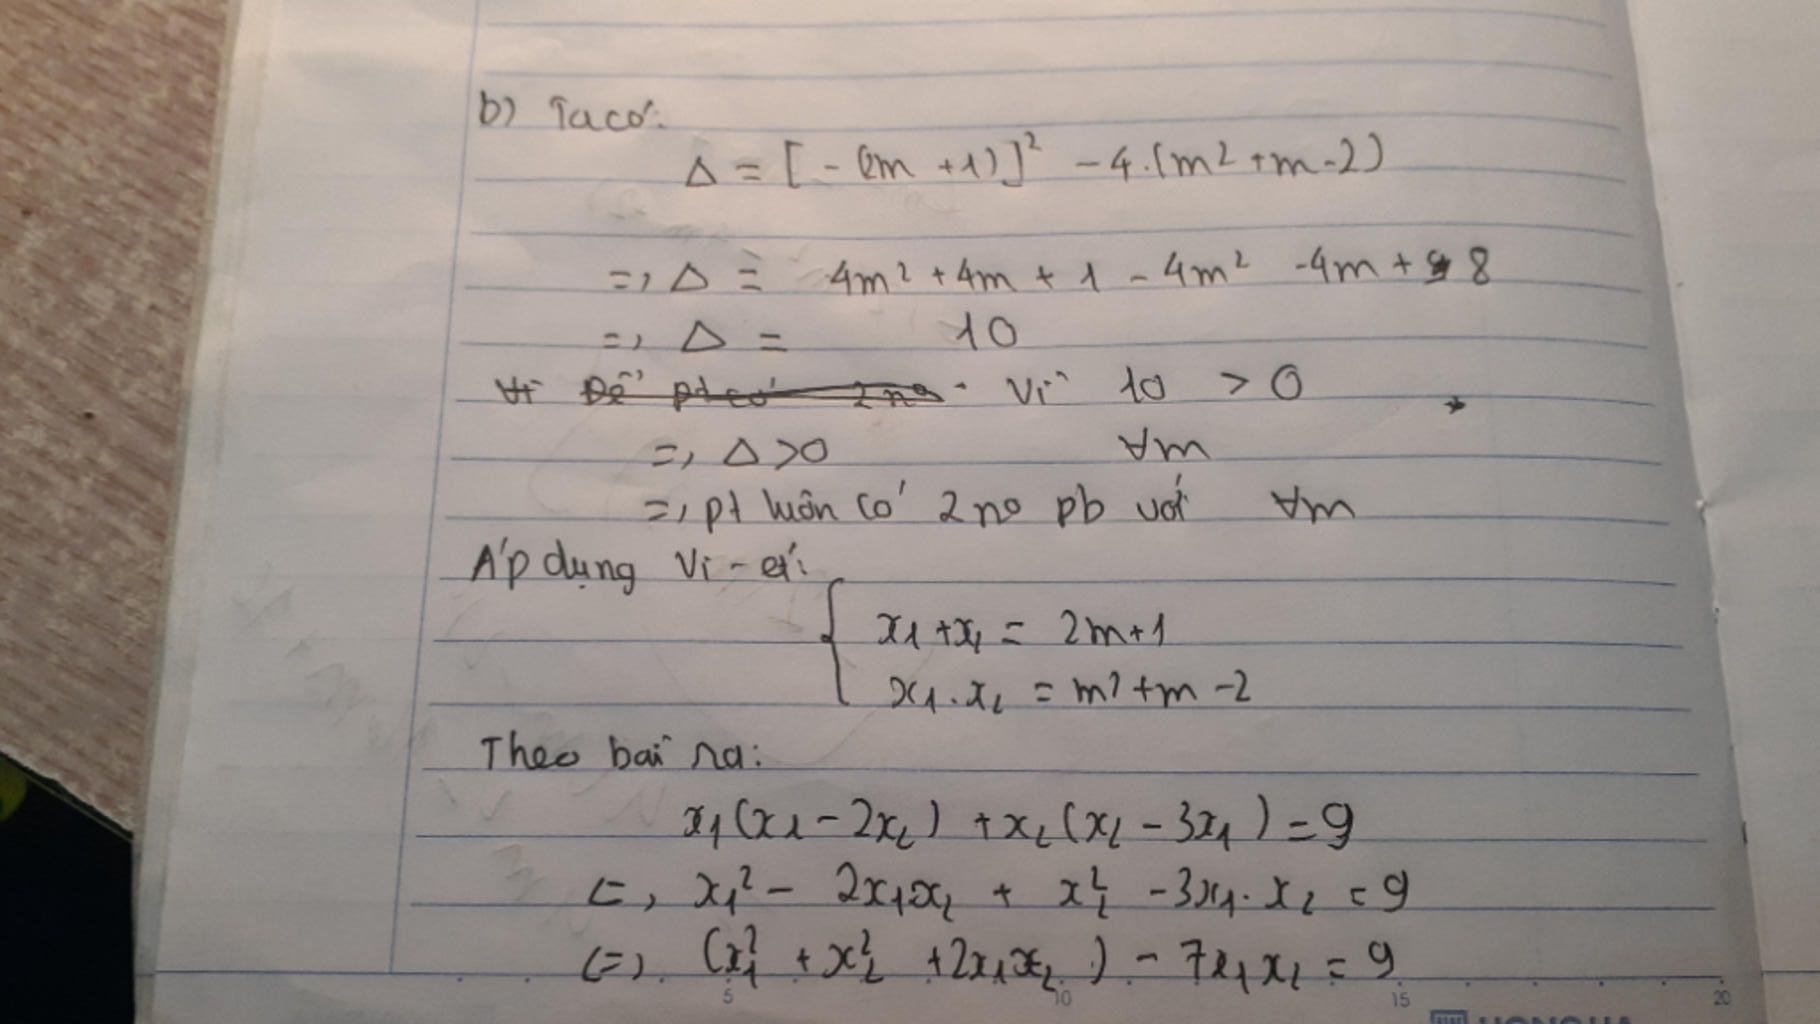 b) Ta có:
Δ = [-(2m+1)]² - 4.(m²+m-2)
=> Δ = 4m² + 4m + 1 - 4m² - 4m + 8
=> Δ = 10
Vì Để pt có 2 no. Vì 10 > 0
=> Δ>0 ∀m
=> pt luôn có 2 no pb với ∀m
Áp dụng Vi-ét:
x₁+x₂ = 2m+1
x₁.x₂ = m²+m-2
Theo bài ra:
x₁(x₁-2x₂) + x₂(x₂-3x₁) = 9
<=> x₁² - 2x₁x₂ + x₂² - 3x₁.x₂ = 9
<=> (x₁² + x₂² + 2x₁x₂) - 7x₁x₂ = 9
5 10 15 20